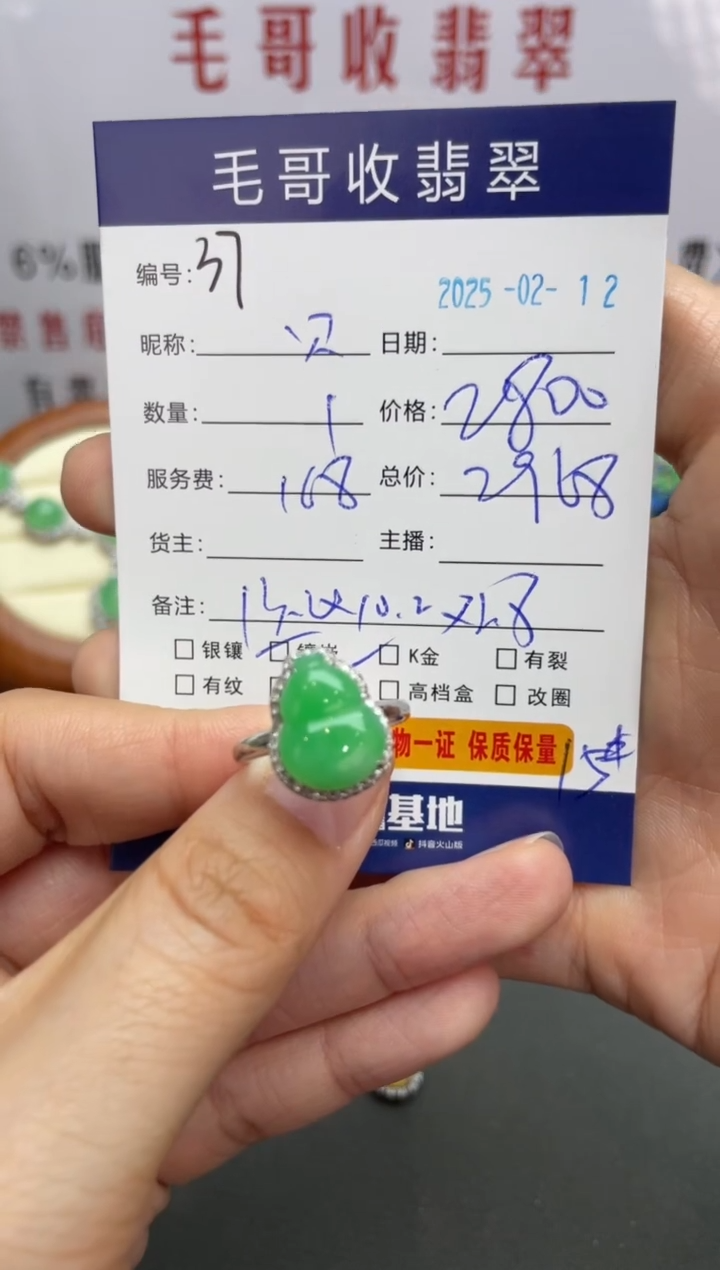 毛哥收翡翠
毛哥收翡翠
6%服
编号: 37
2025-02-12
昵称: 贝 日期:
数量: 1 价格: 2800
服务费: 168 总价: 2968
货主: 主播:
备注:
□ 银镶 □ 镶嵌 □ K金 □ 有裂
□ 有纹 □ 高档盒 □ 改圈
物一证 保质保量
基地
抖音火山版